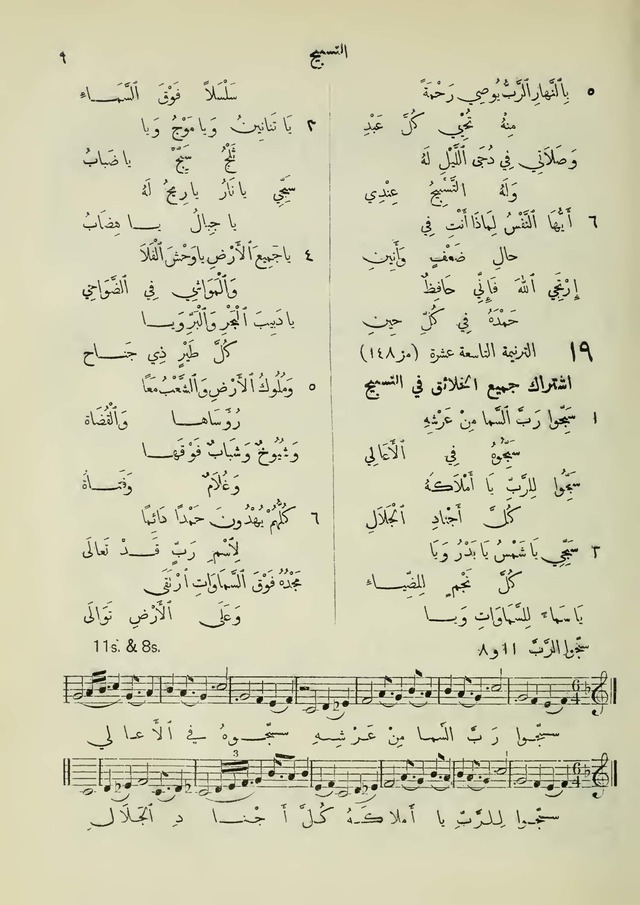 التسبيح
٩
٥ بِالنَّهَارِ الرَّبُّ يُوصِي رَحْمَةً
مِنْهُ تُحْيِي كُلَّ عَبْدِ
وَصَلَاتِي فِي دُجَى اللَّيْلِ لَهُ
وَلَهُ التَّسْبِيحُ عِنْدِي
٦ أَيُّهَا النَّفْسُ لِمَاذَا أَنْتِ فِي
حَالِ ضَعْفٍ وَأَنِينِ
إِرْتَجِي اللهَ فَإِنِّي حَافِظٌ
حَمْدَهُ فِي كُلِّ حِينِ
١٩ الترنيمة التاسعة عشرة (مز ١٤٨)
اشتراك جميع الخلائق في التسبيح
١ سَبِّحُوا رَبَّ السَّمَا مِنْ عَرْشِهِ
سَبِّحُوهُ فِي الْأَعَالِي
سَبِّحُوا لِلرَّبِّ يَا أَمْلَاكَهُ
كُلَّ أَجْنَادِ الْجَلَالِ
٢ سَبِّحِي يَا شَمْسُ يَا بَدْرُ وَيَا
كُلَّ نَجْمٍ لِلضِّيَاء
يَا سَمَاءً لِلسَّمَاوَاتِ وَيَا
سَلْسَلاً فَوْقَ السَّمَاء
٣ يَا تَنَانِينُ وَيَا مَوْجُ وَيَا
ثَلْجُ سَبِّحْ يا ضَبَابُ
سَبِّحِي يَا نَارُ يَا رِيحُ لَهُ
يا جِبالُ يا هِضَابُ
٤ يا جَمِيعَ الْأَرْضِ يا وَحْشَ الْفَلَا
وَالْمَوَاشِي فِي الضَّوَاحِي
يا دَبِيبَ الْبَحْرِ وَالْبَرِّ وَيَا
كُلَّ طَيْرٍ ذِي جَنَاحِ
٥ وَمُلُوكُ الْأَرْضِ وَالشَّعْبُ مَعًا
رُؤَسَاهَا وَالْقُضَاة
وَشُيُوخٌ وَشَبَابٌ فَوْقَهَا
وَغُلَامٌ وَفَتَاةُ
٦ كُلُّهُمْ يُهْدُونَ حَمْدًا دَائِمًا
لِاسْمِ رَبٍّ قَدْ تَعَالَى
مَجْدُهُ فَوْقَ السَّمَاوَاتِ ارْتَقَى
وَعَلَى الْأَرْضِ تَوَالَى
سبّحوا الرَّبَّ ١١ و ٨
11s. & 8s.
سبّحوا رَبَّ السَّما مِنْ عَرْشِهِ سبّحوهُ في الْأَعَالِي
3
سبّحوا لِلرَّبِّ يا أَملاكَهُ كُلَّ أَجْنادِ الْجَلَالِ